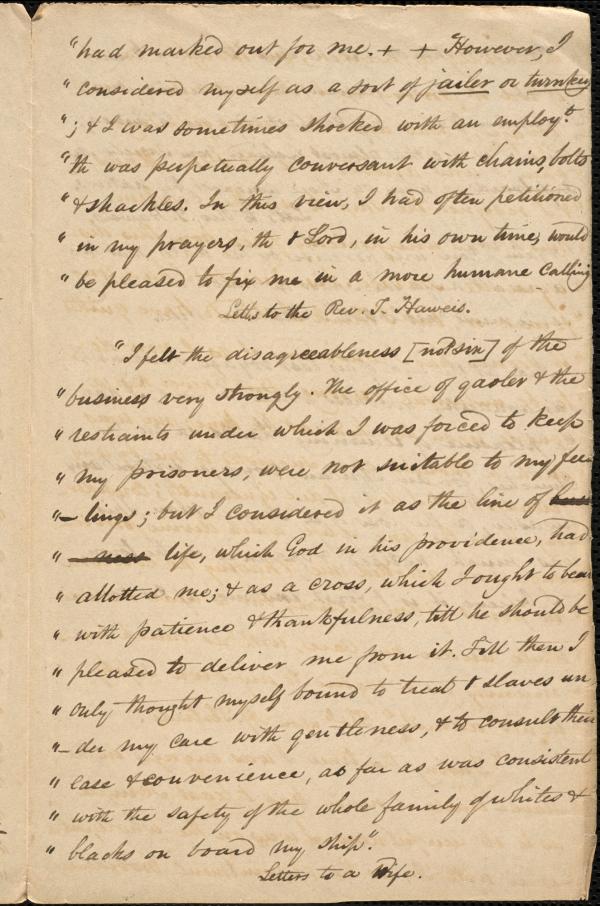 "had marked out for me. + + "However, I
"considered myself as a sort of jailer or turnkey
"; & I was sometimes shocked with an employt.
"th was perpetually conversant with chains, bolts
"& shackles. In this view, I had often petitioned
"in my prayers, th t Lord, in his own time, would
"be pleased to fix me in a more humane calling
Letts to the Rev. T. Haweis.
"I felt the disagreeableness [not sin] of the
"business very strongly. The office of gaoler & the
"restraints under which I was forced to keep
"my prisoners, were not suitable to my fee
"-lings; but I considered it as the line of busi
"-ness life, which God in his providence, had
"allotted me; & as a cross, which I ought to bear
"with patience & thankfulness, till he should be
"pleased to deliver me from it. Till then I
"only thought myself bound to treat t slaves un
"-der my care with gentleness, & to consult their
"ease & convenience, as far as was consistent
"with the safety of the whole family of whites &
"blacks on board my ship".
Letters to a Wife.